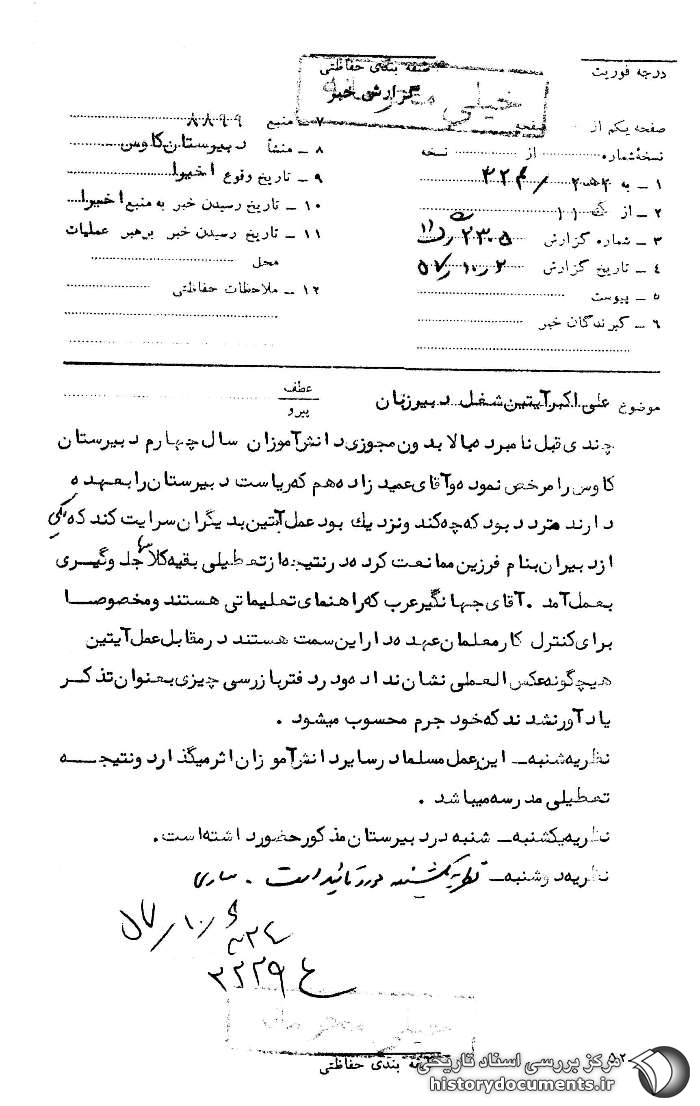 درجه فوریت
طبقه بندی حفاظتی
خیلی محرمانه
گزارش خبر
صفحه یکم از صفحه
نسخه شماره از نسخه
۱ – به ۳۲۴
۲ – از ک ۱۱
۳ – شماره گزارش ۲۳۰۵
۴ – تاریخ گزارش ۵۷/۱۰/۲
۵ – پیوست
۶ – گیرندگان خبر
۷ – منبع ۸۸۹۹
۸ – منشأ دبیرستان کاوس
۹ – تاریخ وقوع اخیرا
۱۰ – تاریخ رسیدن خبر به منبع اخیرا
۱۱ – تاریخ رسیدن خبر برهبر عملیات
محل
۱۲ – ملاحظات حفاظتی
موضوع علی اکبر آیتین شغل دبیر زبان
عطف
پیرو
چندی قبل نامبرده بالا بدون مجوزی دانش آموزان سال چهارم دبیرستان
کاوس را مرخص نموده و آقای عمید زاده هم که ریاست دبیرستان را بعهده
دارند متردد بود که چه کند و نزدیك بود عمل آیتین بدیگران سرایت کند که یکی
از دبیران بنام فرزین ممانعت کرده در نتیجه از تعطیلی بقیه کلاسها جلوگیری
بعمل آمد . آقای جهانگیر عرب که راهنمای تعلیماتی هستند و مخصوصا
برای کنترل کار معلمان عهده دار این سمت هستند در مقابل عمل آیتین
هیچگونه عکس العملی نشان نداده و در دفتر بازرسی چیزی بعنوان تذکر
یادآور نشدند که خود جرم محسوب میشود .
نظریه شنبه – این عمل مسلما در سایر دانش آموزان اثر میگذارد و نتیجه
تعطیلی مدرسه میباشد .
نظریه یکشنبه – شنبه در دبیرستان مذکور حضور داشته است .
نظریه دوشنبه – نظریه یکشنبه مورد تائید است . ساری
۵۷/۱۰/۶
۳۲۴
خیلی محرمانه
طبقه بندی حفاظتی
۵۲
مرکز بررسی اسناد تاریخی
historydocuments.ir